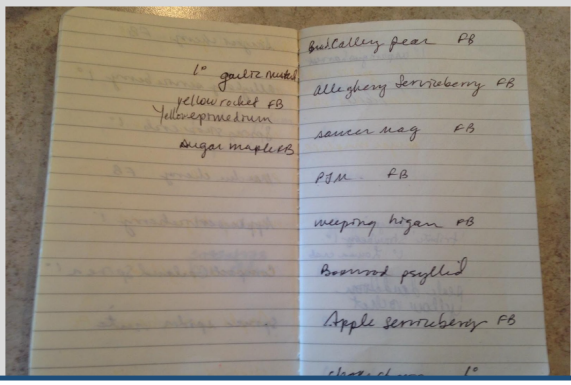 1° garlic mustard
yellow rocket FB
Yellow epimedium
Sugar maple FB
Brad Calley pear FB
Allegheny Serviceberry FB
saucer mag FB
PJM FB
weeping higan FB
Boxwood psyllid
Apple serviceberry FB
1°